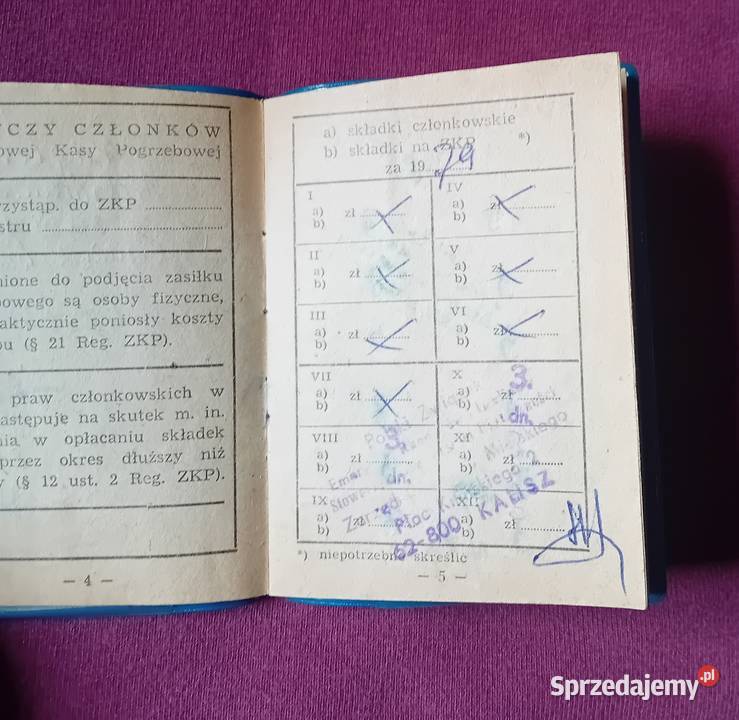 CZY CZŁONKÓW
owej Kasy Pogrzebowej
zystąp. do ZKP
stru
nione do podjęcia zasiłku
bowego są osoby fizyczne,
aktycznie poniosły koszty
bu (§ 21 Reg. ZKP).
praw członkowskich w
astępuje na skutek m. in.
nia w opłacaniu składek
przez okres dłuższy niż
y (§ 12 ust. 2 Reg. ZKP).
— 4 —
a) składki członkowskie
b) składki na ZKP *)
za 19 79
I
a) zł
b)
IV
a) zł
b)
II
a) zł
b)
V
a) zł
b)
III
a) zł
b)
VI
a) zł
b)
VII
a) zł
b)
X
a) zł
b)
VIII
a) zł
b)
XI
a) zł
b)
IX
a) zł
b)
XII
a) zł
b)
3.
dn.
3.
dn.
Polski Związek
Zarząd Miejskiego
Plac 2
62-800 KALISZ
*) niepotrzebne skreślić
— 5 —
Sprzedajemy.pl